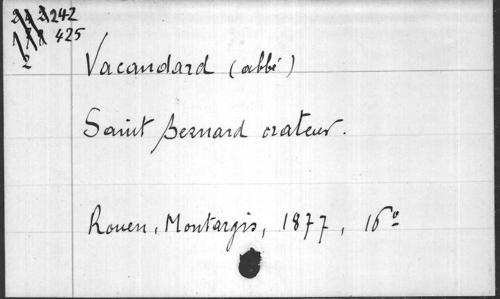 242
425
2
Vacandard (abbé)
Saint Bernard orateur.
Rouen, Montargis, 1877, 16º